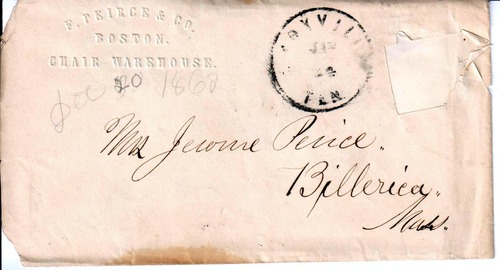 F. PEIRCE & CO.
BOSTON.
CHAIR WAREHOUSE.
Dec 20 1860
TEN
Jerome Peirce.
Billerica.
Mass.